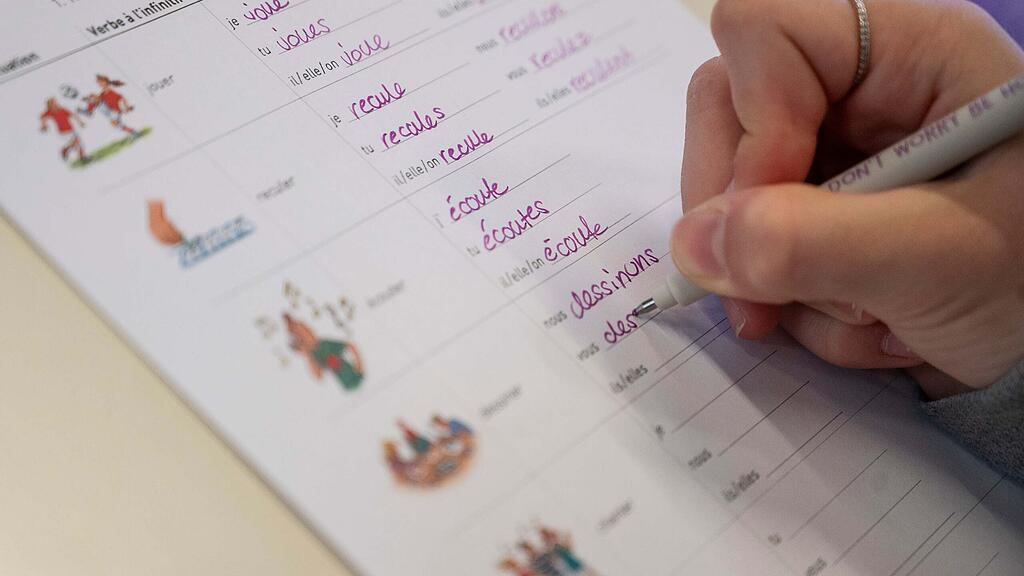 Verbe à l'infinitif
je joue
tu joues
il/elle/on joue
jouer
je recule
tu recules
il/elle/on recule
nous reculon
vous reculez
ils/elles reculent
reculer
j' écoute
tu écoutes
il/elle/on écoute
écouter
nous dessinons
vous des
ils/elles
dessiner
je
nous
ils/elles
chanter
tu
vous
DON'T WORRY BE HA